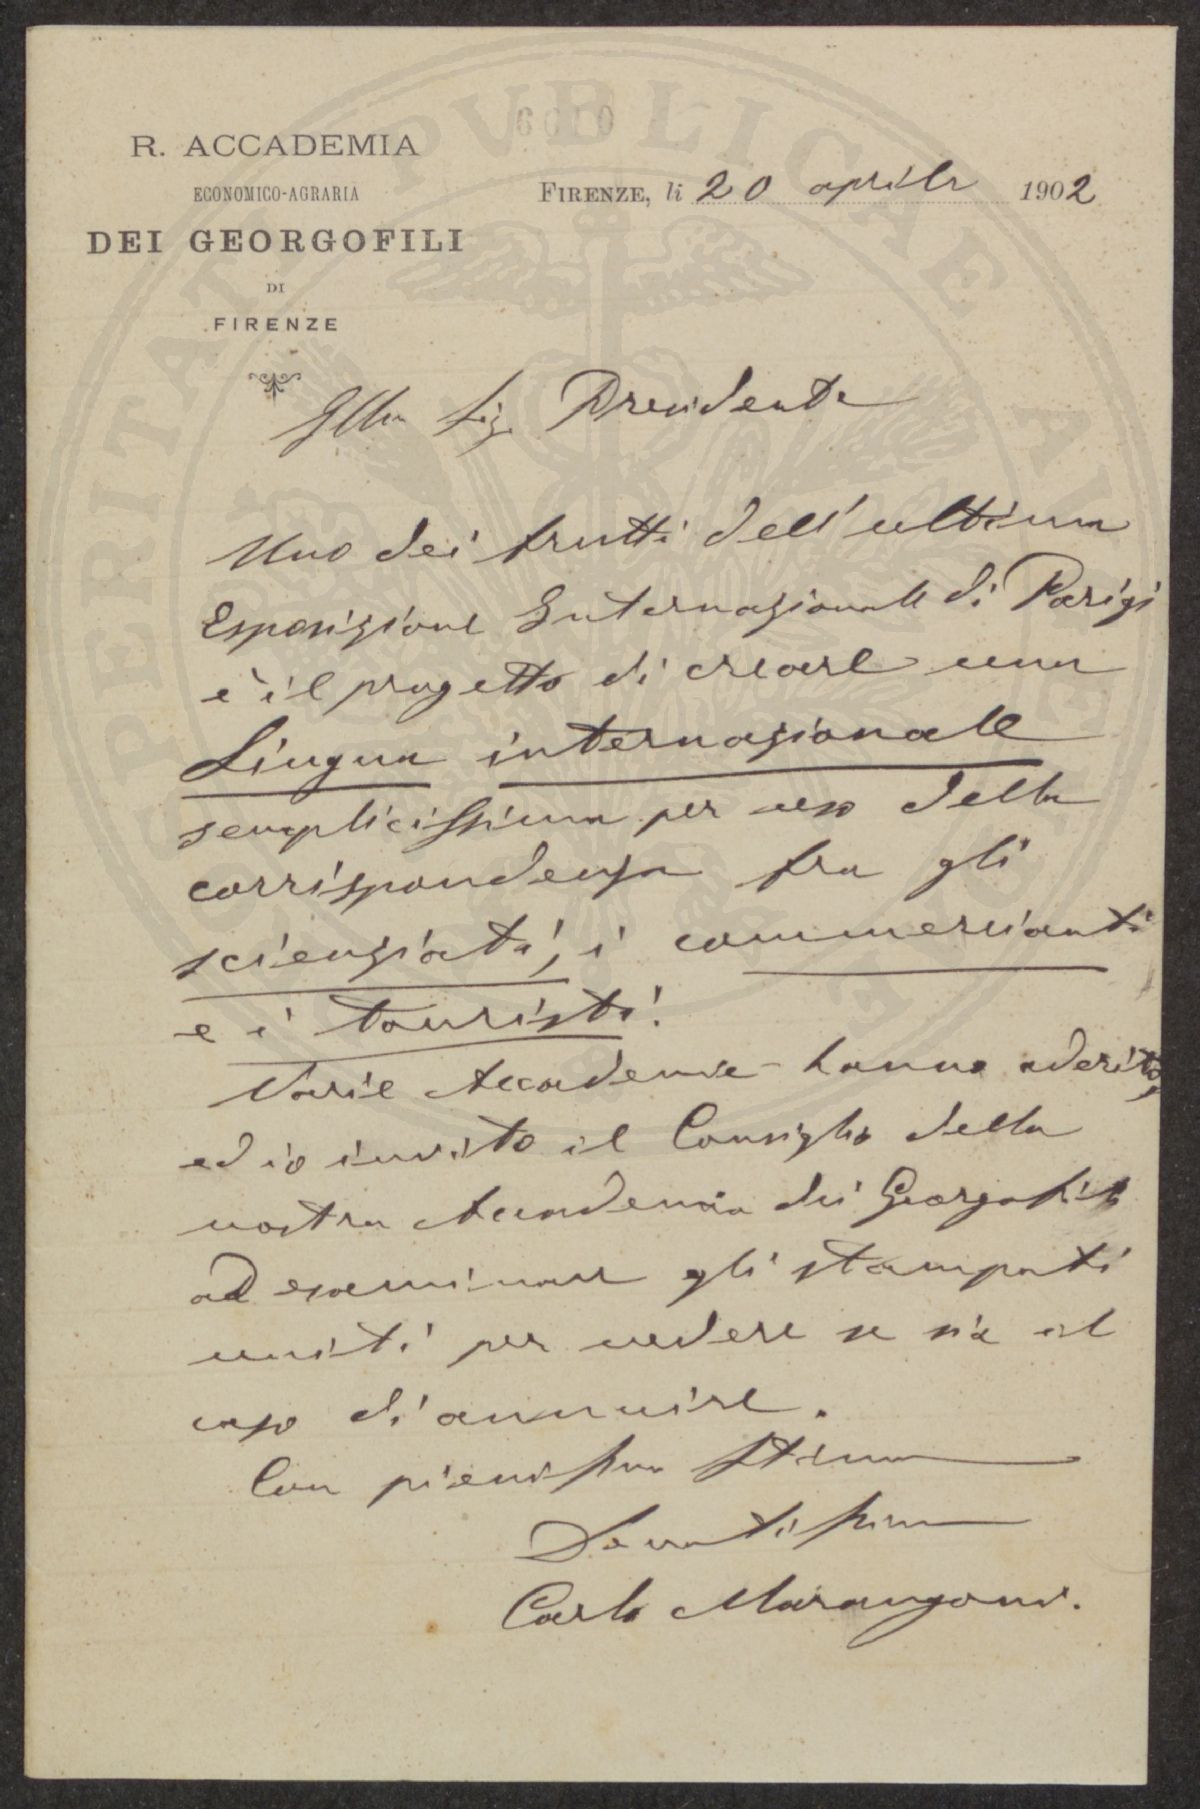 6010
R. ACCADEMIA
ECONOMICO-AGRARIA
DEI GEORGOFILI
DI
FIRENZE
FIRENZE, li 20 aprile 1902
Illmo Sig. Presidente
Uno dei frutti dell'ultima
Esposizione Internazionale di Parigi
è il progetto di creare una
Lingua internazionale
semplicissima per uso della
corrispondenza fra gli
scienziati, i commercianti
e i touristi.
Varie Accademie hanno aderito,
ed io invito il Consiglio della
nostra Accademia dei Georgofili
ad esaminare gli stampati
uniti per vedere se sia il
caso di annuire.
Con pienissima stima
Devotissimo
Carlo Marangoni.
PROSPERITATI PUBLICAE AUGENDAE